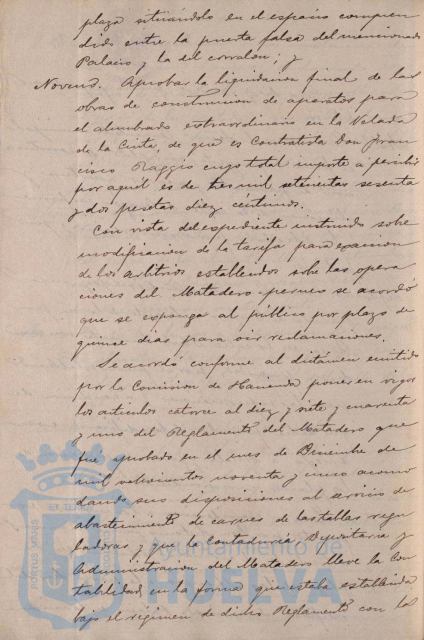 plaza situándolo en el espacio compren
dido entre la puerta falsa del mencionado
Palacio y la del corralon; y
Noveno. Aprobar la liquidacion final de las
obras de construccion de aparatos para
el alumbrado extraordinario en la Velada
de la Cinta, de que es Contratista Don Fran
cisco Raggio cuyo total importe a percibir
por aquél es de tres mil setecientas sesenta
y dos pesetas diez centimos.
Con vista del expediente instruido sobre
modificacion de la tarifa para exaccion
de los arbitrios establecidos sobre las opera
ciones del Matadero se acordó
que se exponga al público por plazo de
quince dias para oir reclamaciones.
Se acordó conforme al dictámen emitido
por la Comision de Hacienda poner en vigor
los articulos catorce al diez y siete y cuarenta
y uno del Reglamento del Matadero que
fué aprobado en el mes de Diciembre de
mil ochocientos noventa y cinco acomo
dando sus disposiciones al servicio de
abastecimiento de carnes de las tablas regu
ladoras y que la Contaduria Depositaria y
Administracion del Matadero lleve la Con
tabilidad en la forma que estaba establecida
bajo el régimen de dicho Reglamento con la
Ayuntamiento de
HUELVA
PORTUS MARIS
ET TERRAE